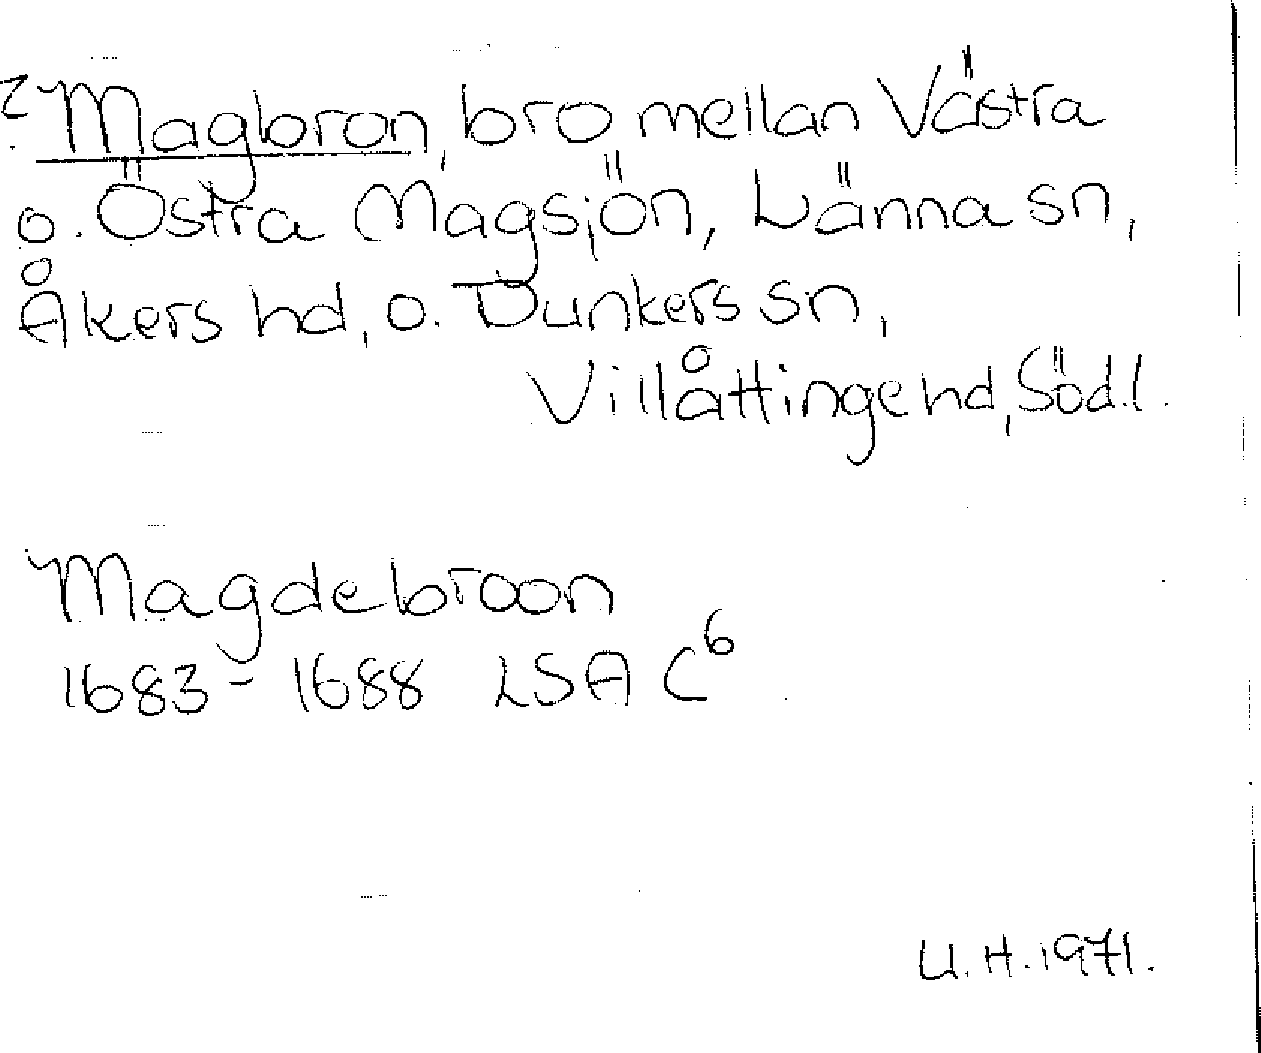 ? Magbron, bro mellan Västra
o. Östra Magsjön, Länna sn,
Åkers hd, o. Dunkers sn,
Villåttinge hd, Söd.l.
Magdebroon
1683-1688 LSA C⁶
U.H. 1971.